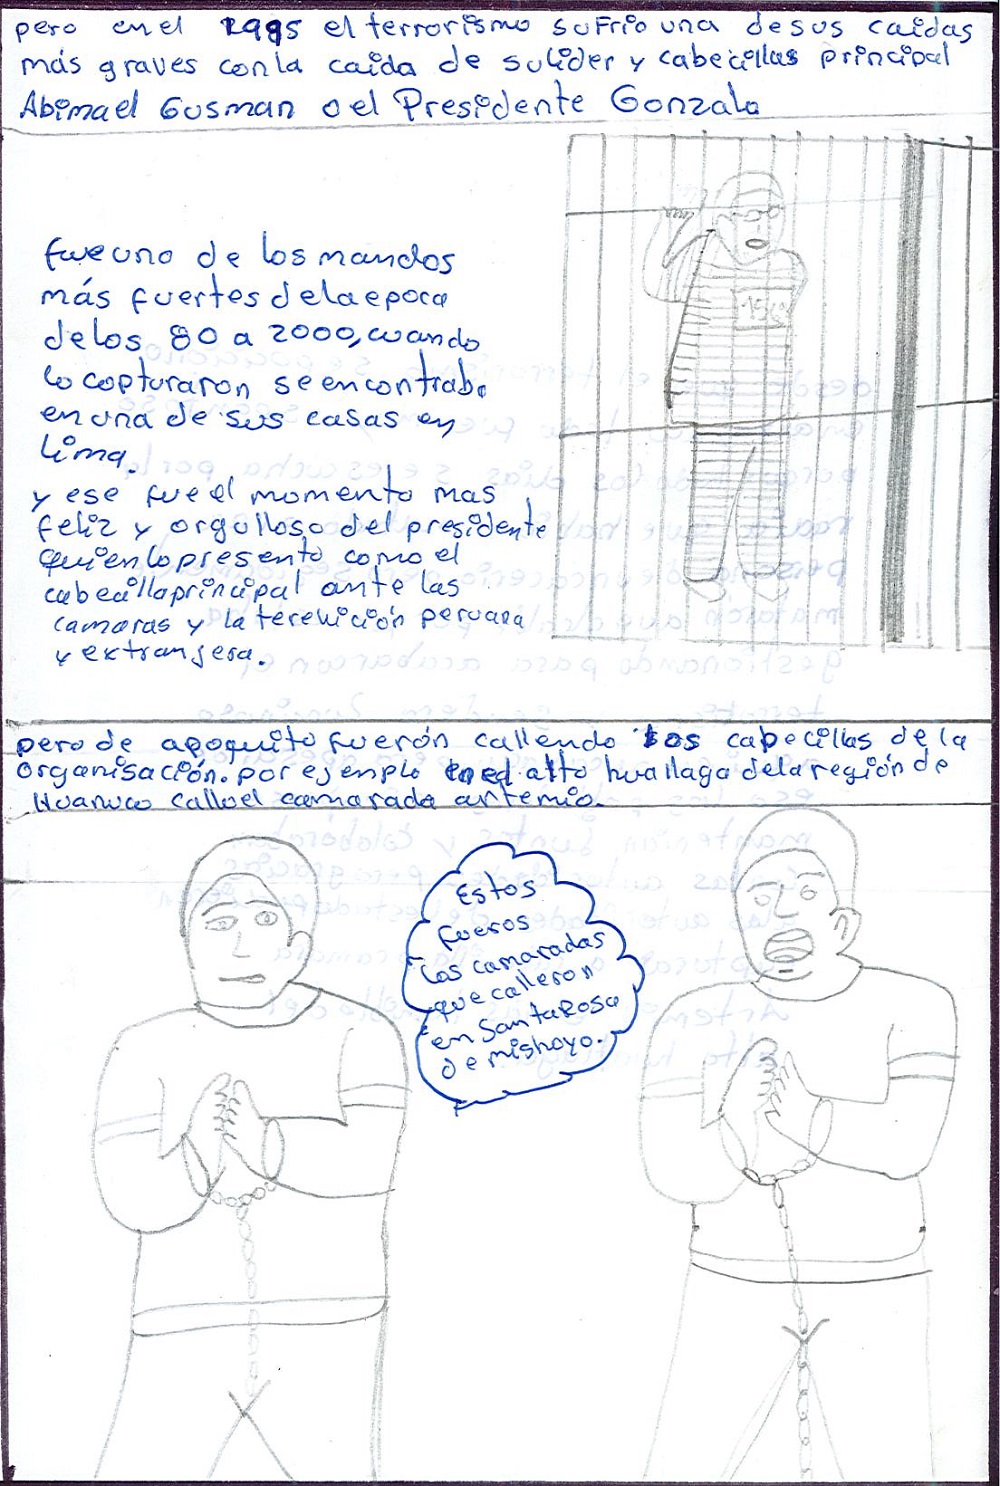 pero en el 1995 el terrorismo sufrio una de sus caidas
más graves con la caida de su lider y cabecillas principal
Abimael Gusman o el Presidente Gonzalo
fue uno de los mandos
más fuertes de la epoca
de los 80 a 2000, cuando
lo capturaron se encontraba
en una de sus casas en
Lima.
y ese fue el momento mas
feliz y orgulloso del presidente
quien lo presento como el
cabecilla principal ante las
camaras y la televición peruana
y extranjera.
1509
pero de apoquito fuerón callendo los cabecillas de la
organisación. por ejemplo en el alto huallaga de la región de
Huanuco callo el camarada artemio.
Estos
fueros
los camaradas
que calleron
en Santa Rosa
de mishoyo.